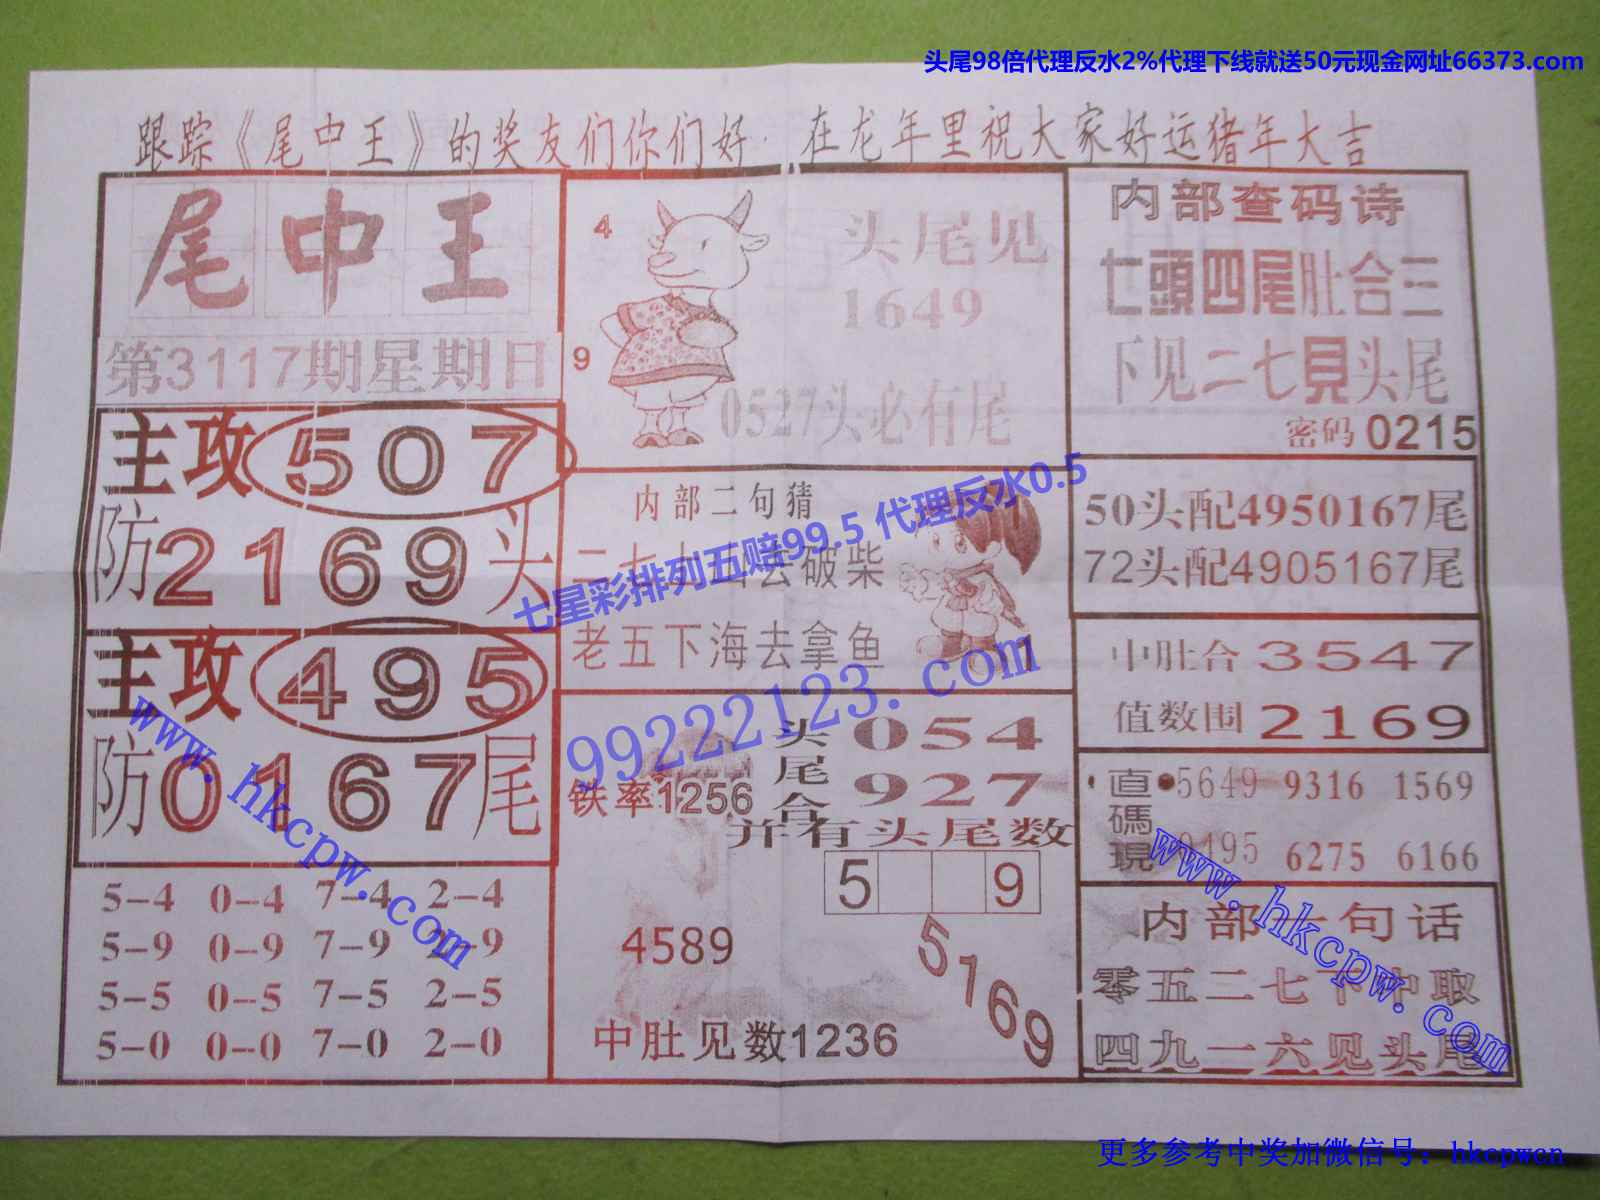 头尾98倍代理反水2%代理下线就送50元现金网址66373.com
跟踪《尾中王》的奖友们你们好· 在龙年里祝大家好运猪年大吉
尾中王
第3117期星期日
主攻507
防2169头
主攻495
防0167尾
5-4 0-4 7-4 2-4
5-9 0-9 7-9 2-9
5-5 0-5 7-5 2-5
5-0 0-0 7-0 2-0
4
9
头尾见
1649
0527头必有尾
内部二句猜
去破柴
老五下海去拿鱼
七星彩排列五赔99.5 代理反水0.5
99222123.com
头尾合
054
927
铁率1256
并有头尾数
5 9
4589
5169
中肚见数1236
内部查码诗
七頭四尾肚合三
下见二七見头尾
密码0215
50头配4950167尾
72头配4905167尾
中肚合3547
值数围2169
直碼現
5649 9316 1569
6275 6166
内部一句话
零五二七下中取
四九一六见头尾
www.hkcpw.com
www.hkcpw.com
更多参考中奖加微信号：hkcpwcn